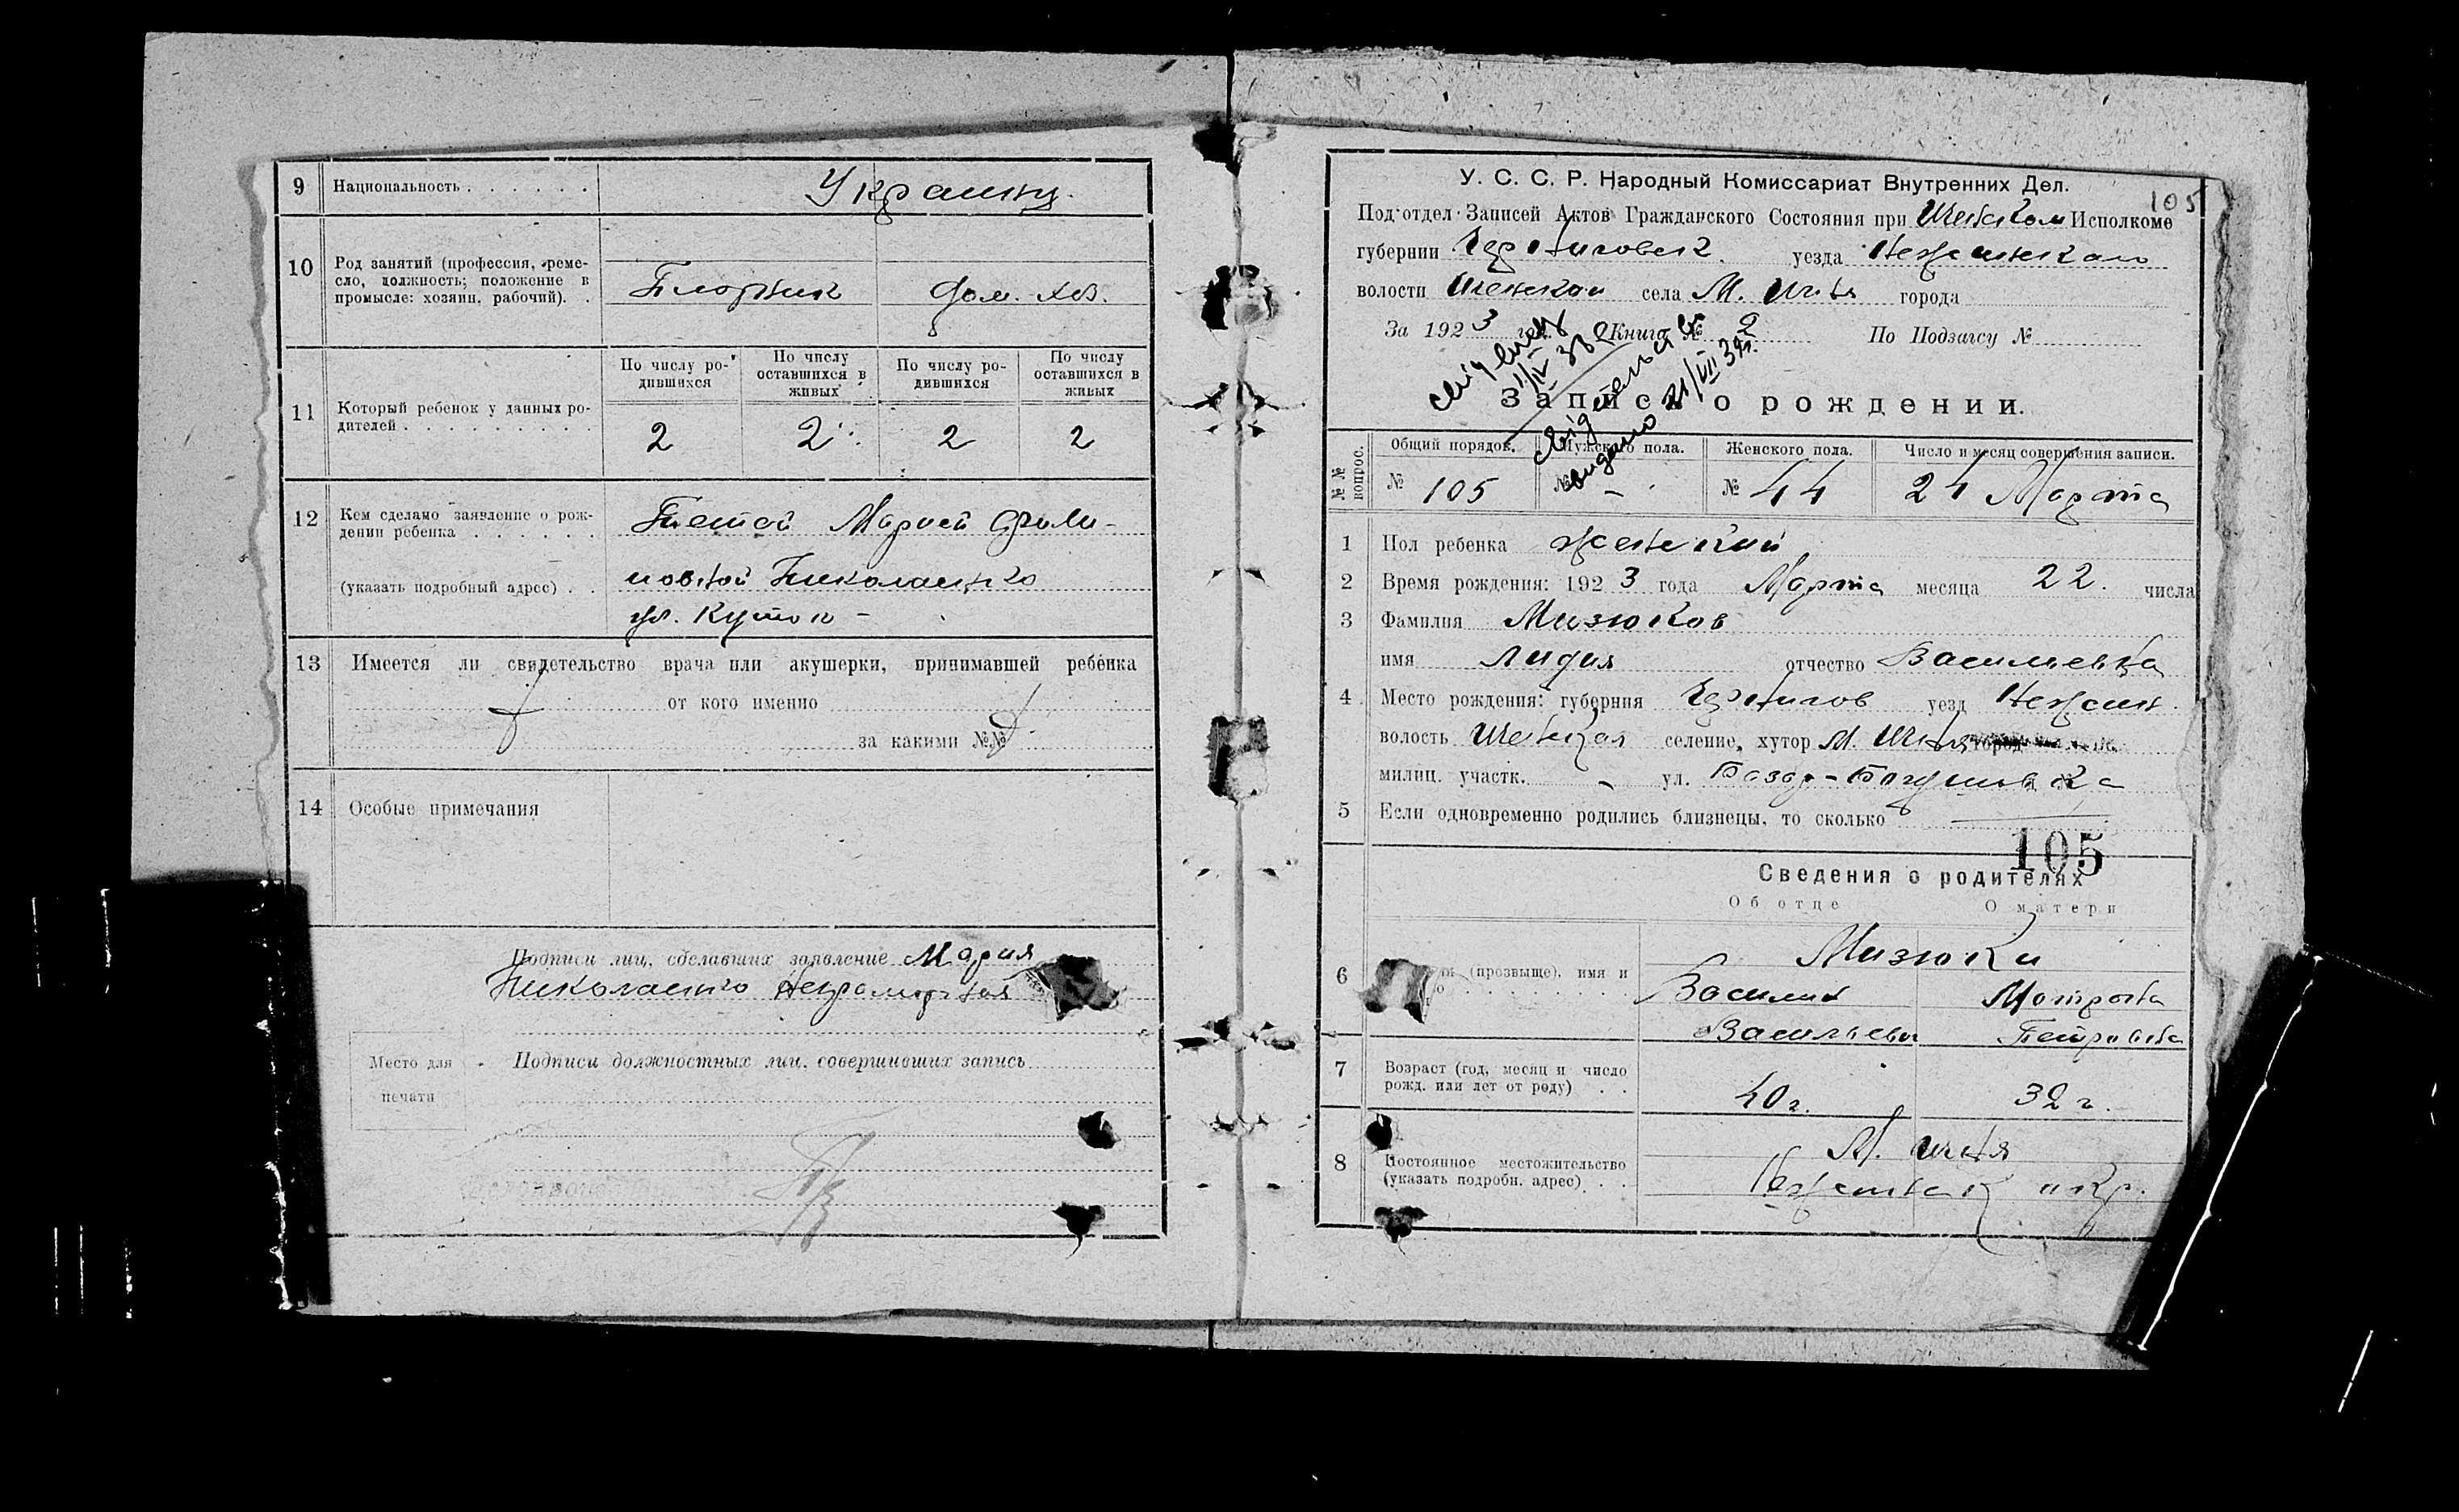 9 Национальность . . . . . . Украинц.
10 Род занятий (профессия, реме-
сло, должность; положение в
промысле: хозяин, рабочий). . Плотник дом. хоз.
По числу ро-
дившихся По числу
оставшихся в
живых По числу ро-
дившихся По числу
оставшихся в
живых
11 Который ребенок у данных ро-
дителей . . . . . . . . . 2 2 2 2
12 Кем сделано заявление о рож-
дении ребенка . . . . . . Теткой Марией Фили-
(указать подробный адрес) . . повной Николаенко
ул. Куток -
13 Имеется ли свидетельство врача или акушерки, принимавшей ребенка
от кого именно
за какими №№
14 Особые примечания
Подписи лиц, сделавших заявление Мария
Николаенко Неграмотная
Место для
печати
Подписи должностных лиц, совершивших запись
105
У. С. С. Р. Народный Комиссариат Внутренних Дел.
Под'отдел Записей Актов Гражданского Состояния при Иченском Исполкоме
губернии Черниговск. уезда Нежинского
волости Иченской села М. Ичня города
За 1923 год. Книга № 2 По Подзагсу №
Запись о рождении.
№ №
вопрос. Общий порядок. Мужского пола. Женского пола. Число и месяц совершения записи.
№ 105 № - № 44 24 Марта
1 Пол ребенка женский
2 Время рождения: 1923 года Марта месяца 22. числа
3 Фамилия Мизюков
имя Лидия отчество Васильевна
4 Место рождения: губерния Чернигов уезд Нежин.
волость Иченская селение, хутор М. Ичня город
милиц. участк. - ул. Базар-
5 Если одновременно родились близнецы, то сколько
105
Сведения о родителях
Об отце О матери
6 (прозвище), имя и Мизюки
Василий Мотрона
Васильев Петровна
7 Возраст (год, месяц и число
рожд. или лет от роду) . . 40 г. 32 г.
8 Постоянное местожительство
(указать подробн. адрес) . . М. Ичня
Нежинск окр.